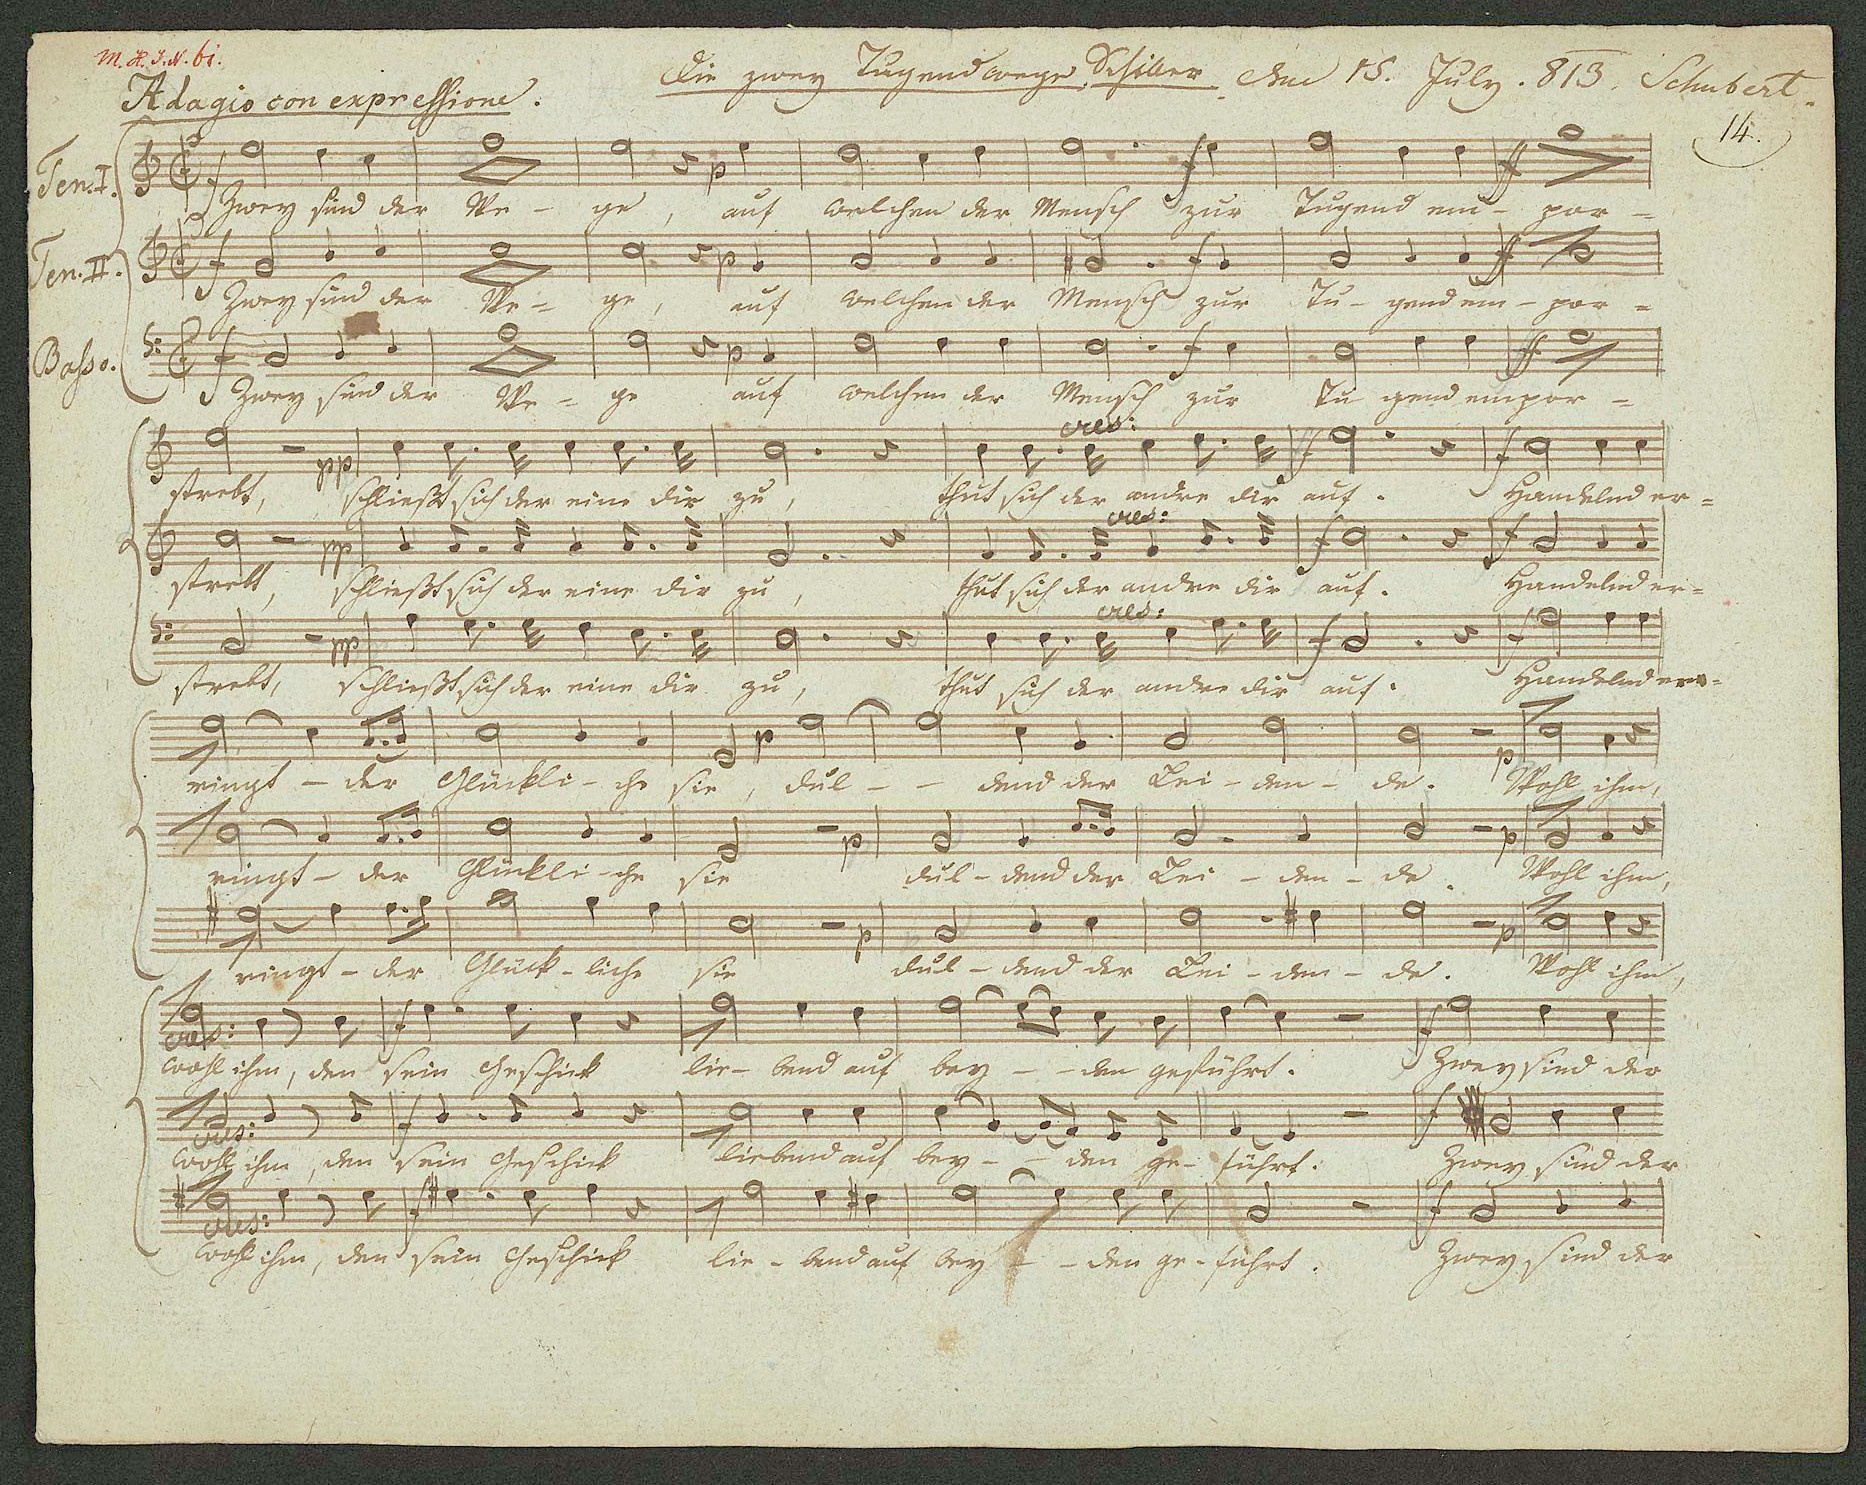 M. K. J. N. 61.
Die zwey Tugendwege. Schiller. den 15. July. 813. Schubert.
Adagio con expressione.
14.
Ten. I.
f p f ff
Zwey sind der We - ge, auf welchen der Mensch zur Tugend em - por -
Ten. II.
f p f ff
Zwey sind der We - ge, auf welchen der Mensch zur Tu - gend em - por -
Basso.
f p f ff
Zwey sind der We - ge auf welchen der Mensch zur Tu gend empor -
pp cres: f f
strebt, schließt sich der eine dir zu, thut sich der andre dir auf. Handelnd er -
pp cres: f f
strebt, schließt sich der eine dir zu, thut sich der andre dir auf. Handelnd er -
pp cres: f f
strebt, schließt sich der eine dir zu, thut sich der andre dir auf. Handelnd er -
p p
ringt - der Glückli - che sie, dul - - dend der Lei - den - de. Wohl ihm,
p p
ringt - der Glückli - che sie dul - dend der Lei - den - de. Wohl ihm,
p p
ringt - der Glück - liche sie dul - dend der Lei - den - de. Wohl ihm,
cres: f f
wohl ihm, den sein Geschick lie - bend auf bey - - den geführt. Zwey sind der
cres: f f
wohl ihm, den sein Geschick liebend auf bey - - den ge - führt. Zwey sind der
cres: f f
wohl ihm, den sein Geschick lie - bend auf bey - - den ge - führt. Zwey sind der